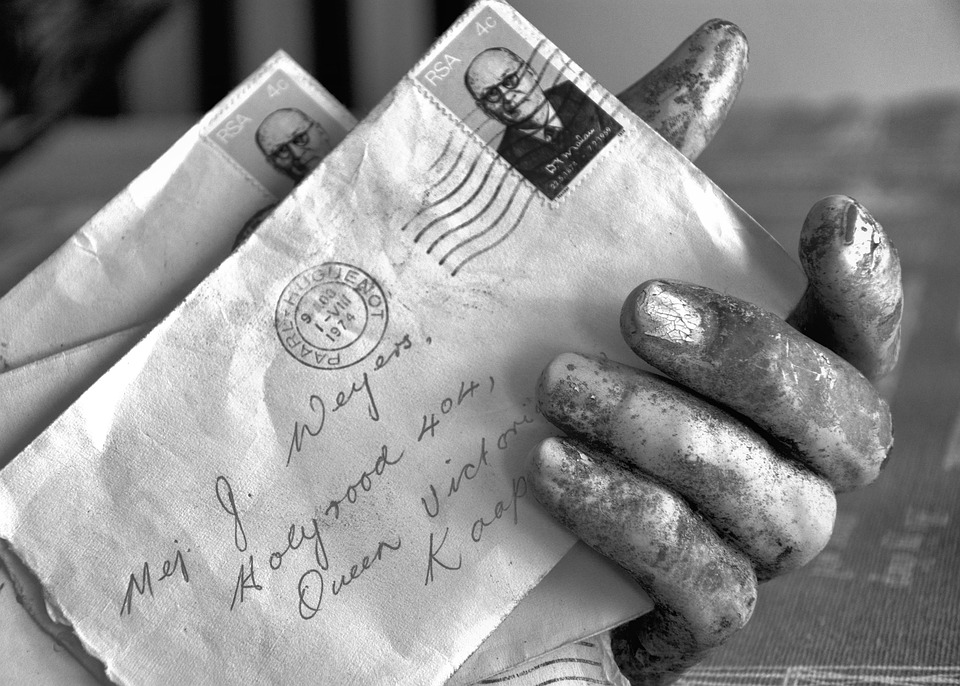 RSA 4c
RSA 4c
PAARL-HUGUENOT
1-VIII
1974
PAARL
Mej. J. Weyers,
Holyrood 404,
Queen Victori
Kaap